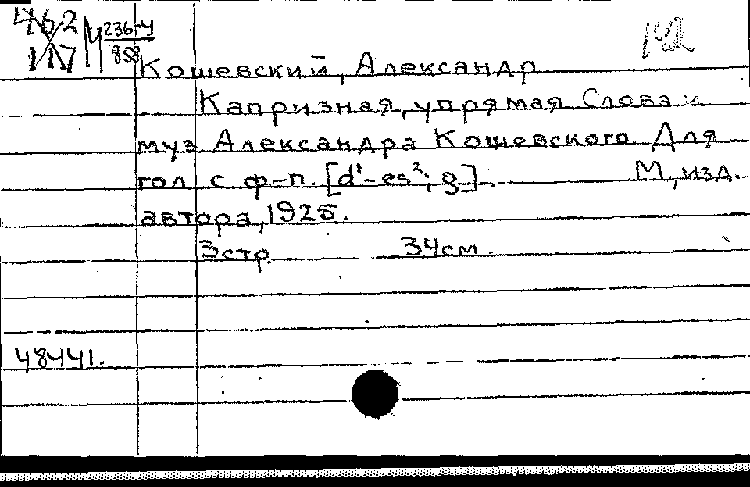 462 М 236-4
117 858
Кошевский, Александр
Капризная, упрямая Слова и
муз Александра Кошевского Для
гол с ф-п. [d¹-es²; g]. М, изд.
автора, 1925.
3стр 34см.
48441.